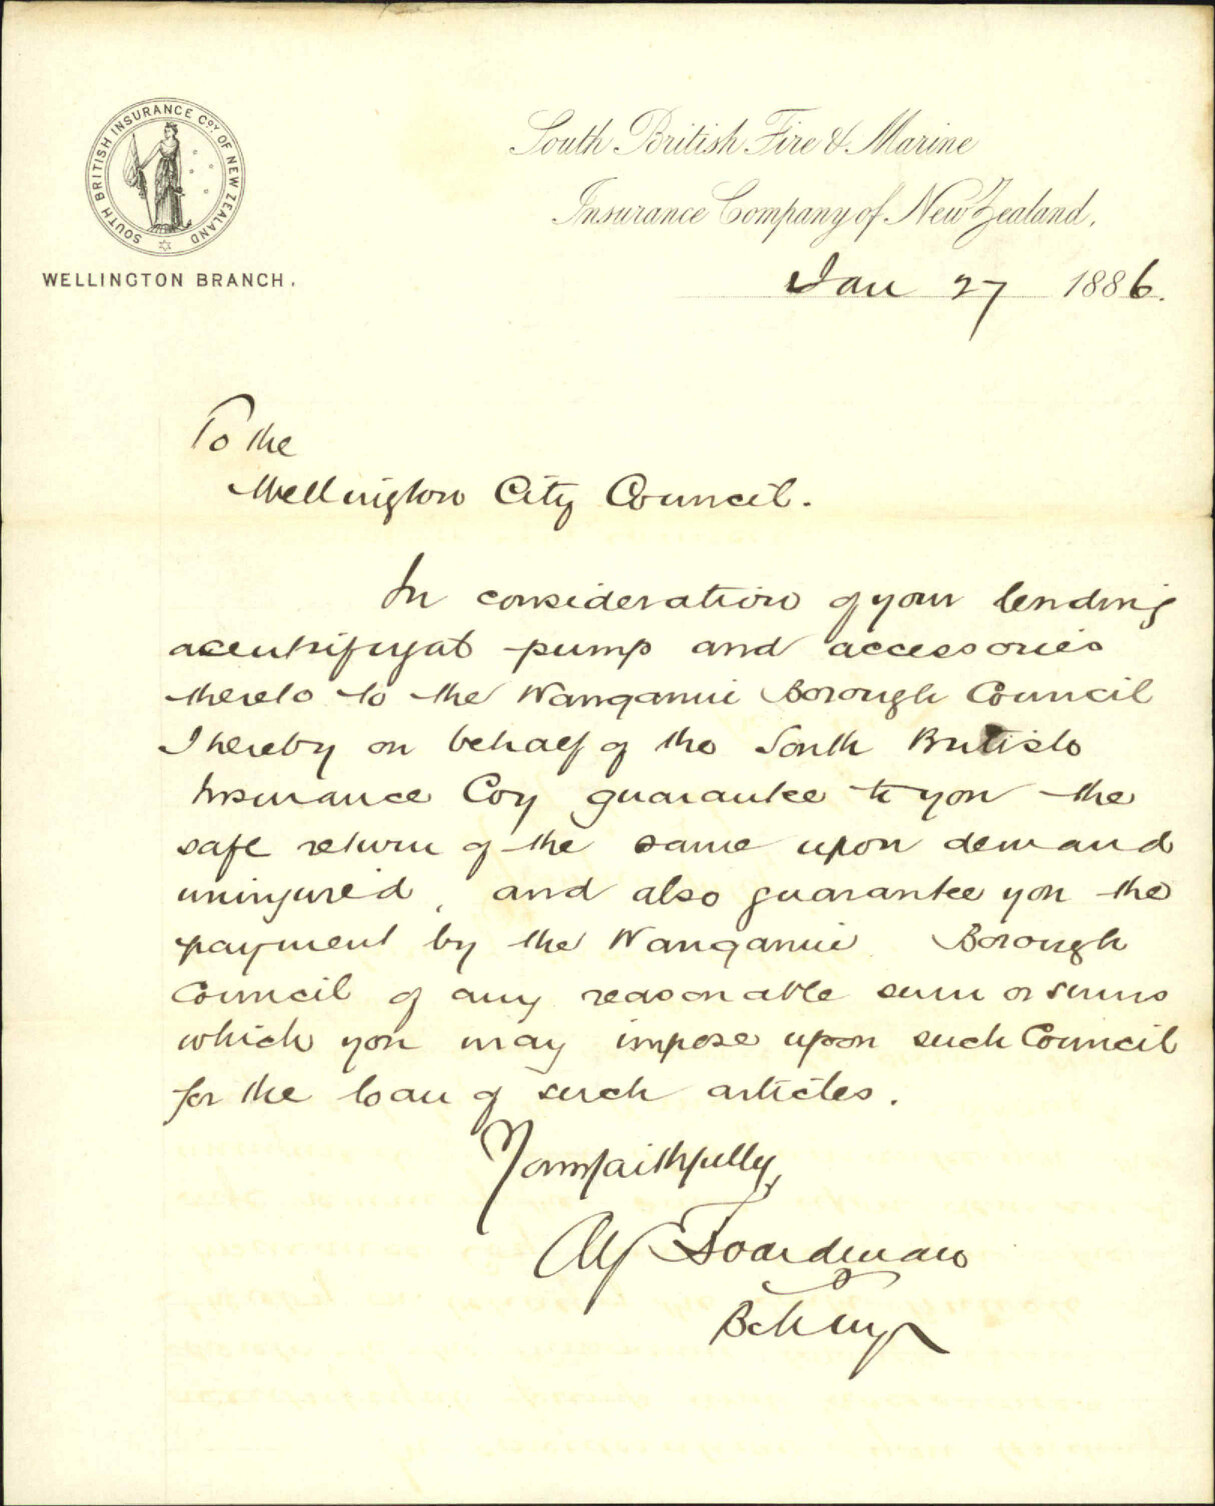 SOUTH BRITISH INSURANCE Coy OF NEW ZEALAND
WELLINGTON BRANCH.
South British Fire & Marine
Insurance Company of New Zealand.
Jan 27 1886.
To the
Wellington City Council.
In consideration of your lending
a centrifugal pump and accessories
thereto to the Wanganui Borough Council
I hereby on behalf of the South British
Insurance Coy guarantee to you the
safe return of the same upon demand
uninjured, and also guarantee you the
payment by the Wanganui Borough
Council of any reasonable sum or sums
which you may impose upon such Council
for the loan of such articles.
Yours faithfully
Alf Boardman